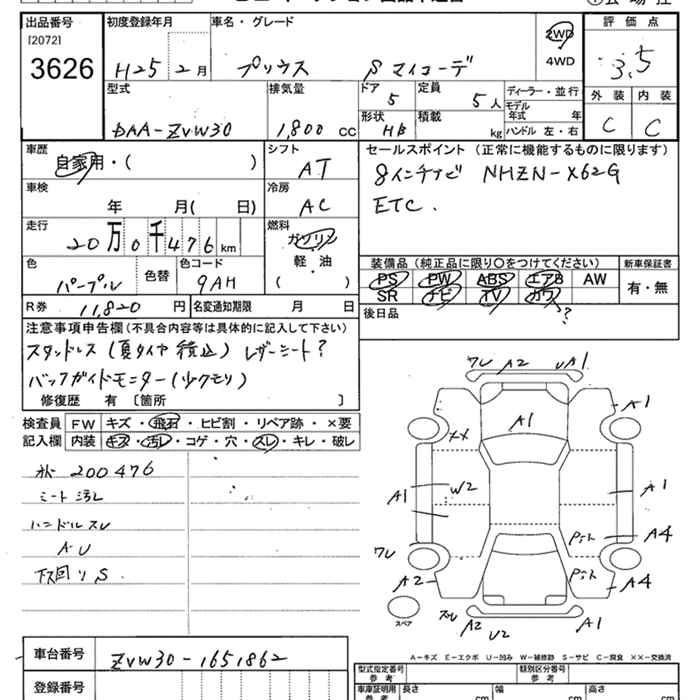 出品番号 初度登録年月 車名・グレード 評価点
[2072]
3626 H25 2月 プリウス Sマイコーデ 2WD 4WD 3.5
型式 排気量 ドア 5 定員 5人 ディーラー・並行 外装 内装
モデル年式 年
DAA-ZVW30 1,800 CC 形状 HB 積載 kg ハンドル 左・右 C C
車歴 シフト セールスポイント (正常に機能するものに限ります)
自家用・( ) AT 8インチナビ NHZN-X62G
車検 冷房 ETC.
年 月( 日) AC
走行 燃料
20万0千476km ガソリン
軽・油
( )
装備品 (純正品に限り○をつけてください) 新車保証書
色 色替 色コード PS PW ABS エアB AW 有・無
パープル 9AH SR ナビ TV カワ ?
R券 11,820円 名変通知期限 月 日 後日品
注意事項申告欄(不具合内容等は具体的に記入して下さい)
スタッドレス (夏タイヤ積込) レザーシート?
バックガイドモニター(少クモリ)
修復歴 有 〔箇所 〕
検査員 FW キズ・飛石・ヒビ割・リペア跡・×要
記入欄 内装 キズ・汚レ・コゲ・穴・スレ・キレ・破レ
200476
シート汚レ
ハンドルスレ
AU
下回りS
ワレ A2 A1
A1 A1
XX
W2
A1 A1
A4
ワレ
A2 A4
スペア
A2 U2 A1
A-キズ E-エクボ U-凹み W-補修跡 S-サビ C-腐食 ××-交換済
車台番号 ZVW30-1651862
登録番号
型式指定番号 参考 類別区分番号 参考
車庫証明用 参考 長さ cm 幅 cm 高さ cm